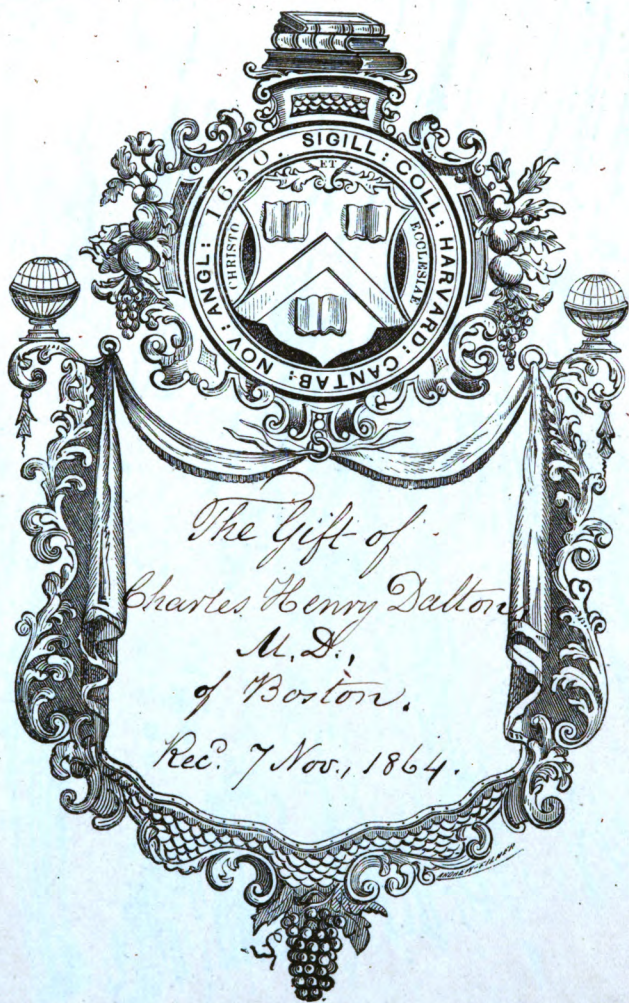 SIGILL: COLL: HARVARD: CANTAB: NOV: ANGL: 1650.
CHRISTO ET ECCLESIAE
The Gift of
Charles Henry Dalton,
M.D.,
of Boston.
Rec'd. 7 Nov., 1864.
ANDREW-FILMER